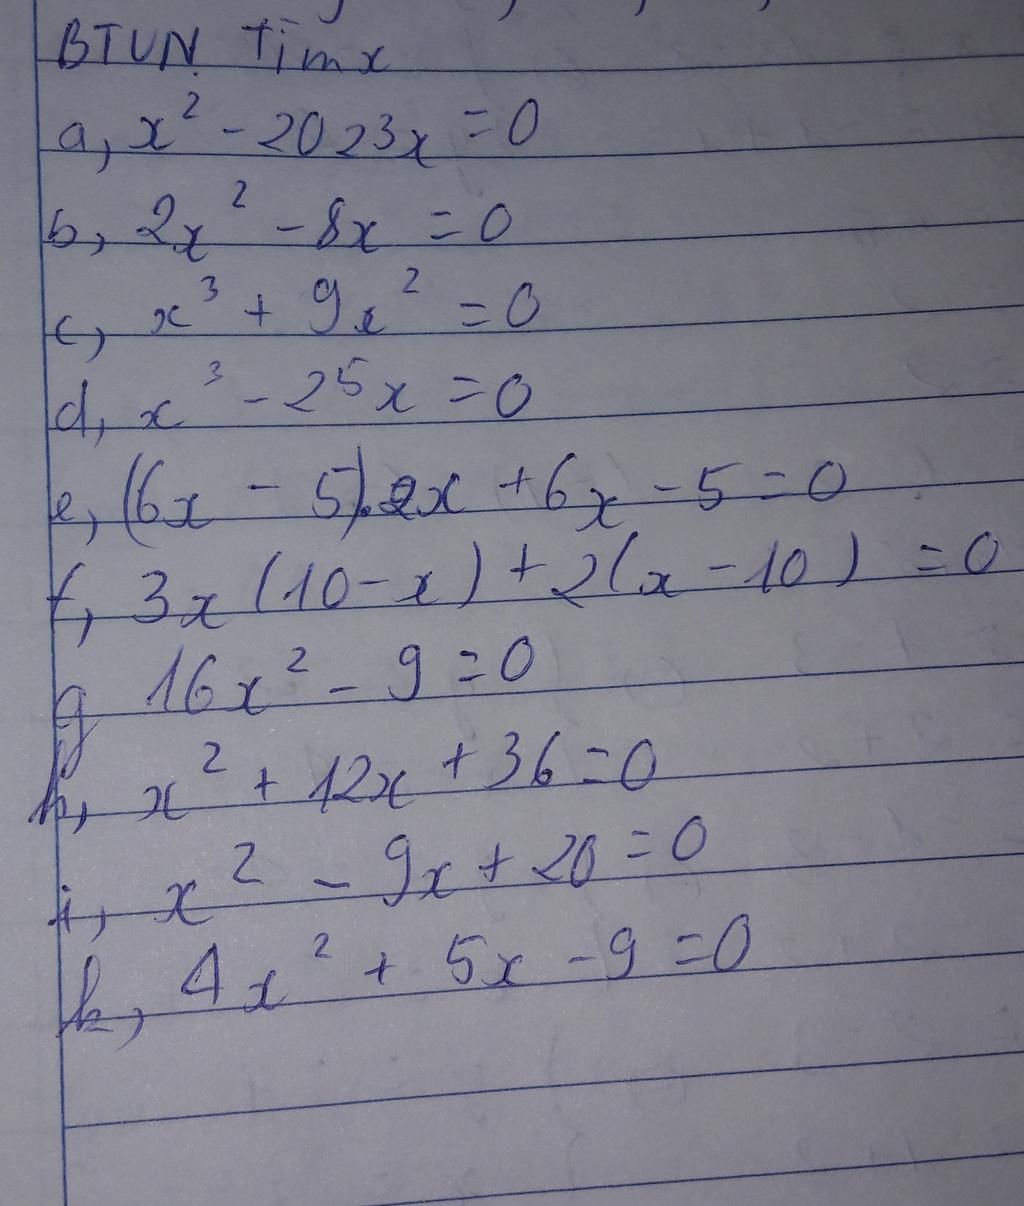 BTVN Tìm x
a, x² - 2023x = 0
b, 2x² - 8x = 0
c, x³ + 9x² = 0
d, x³ - 25x = 0
e, (6x - 5).2x + 6x - 5 = 0
f, 3x(10-x) + 2(x-10) = 0
g 16x² - 9 = 0
h, x² + 12x + 36 = 0
i, x² - 9x + 20 = 0
k, 4x² + 5x - 9 = 0